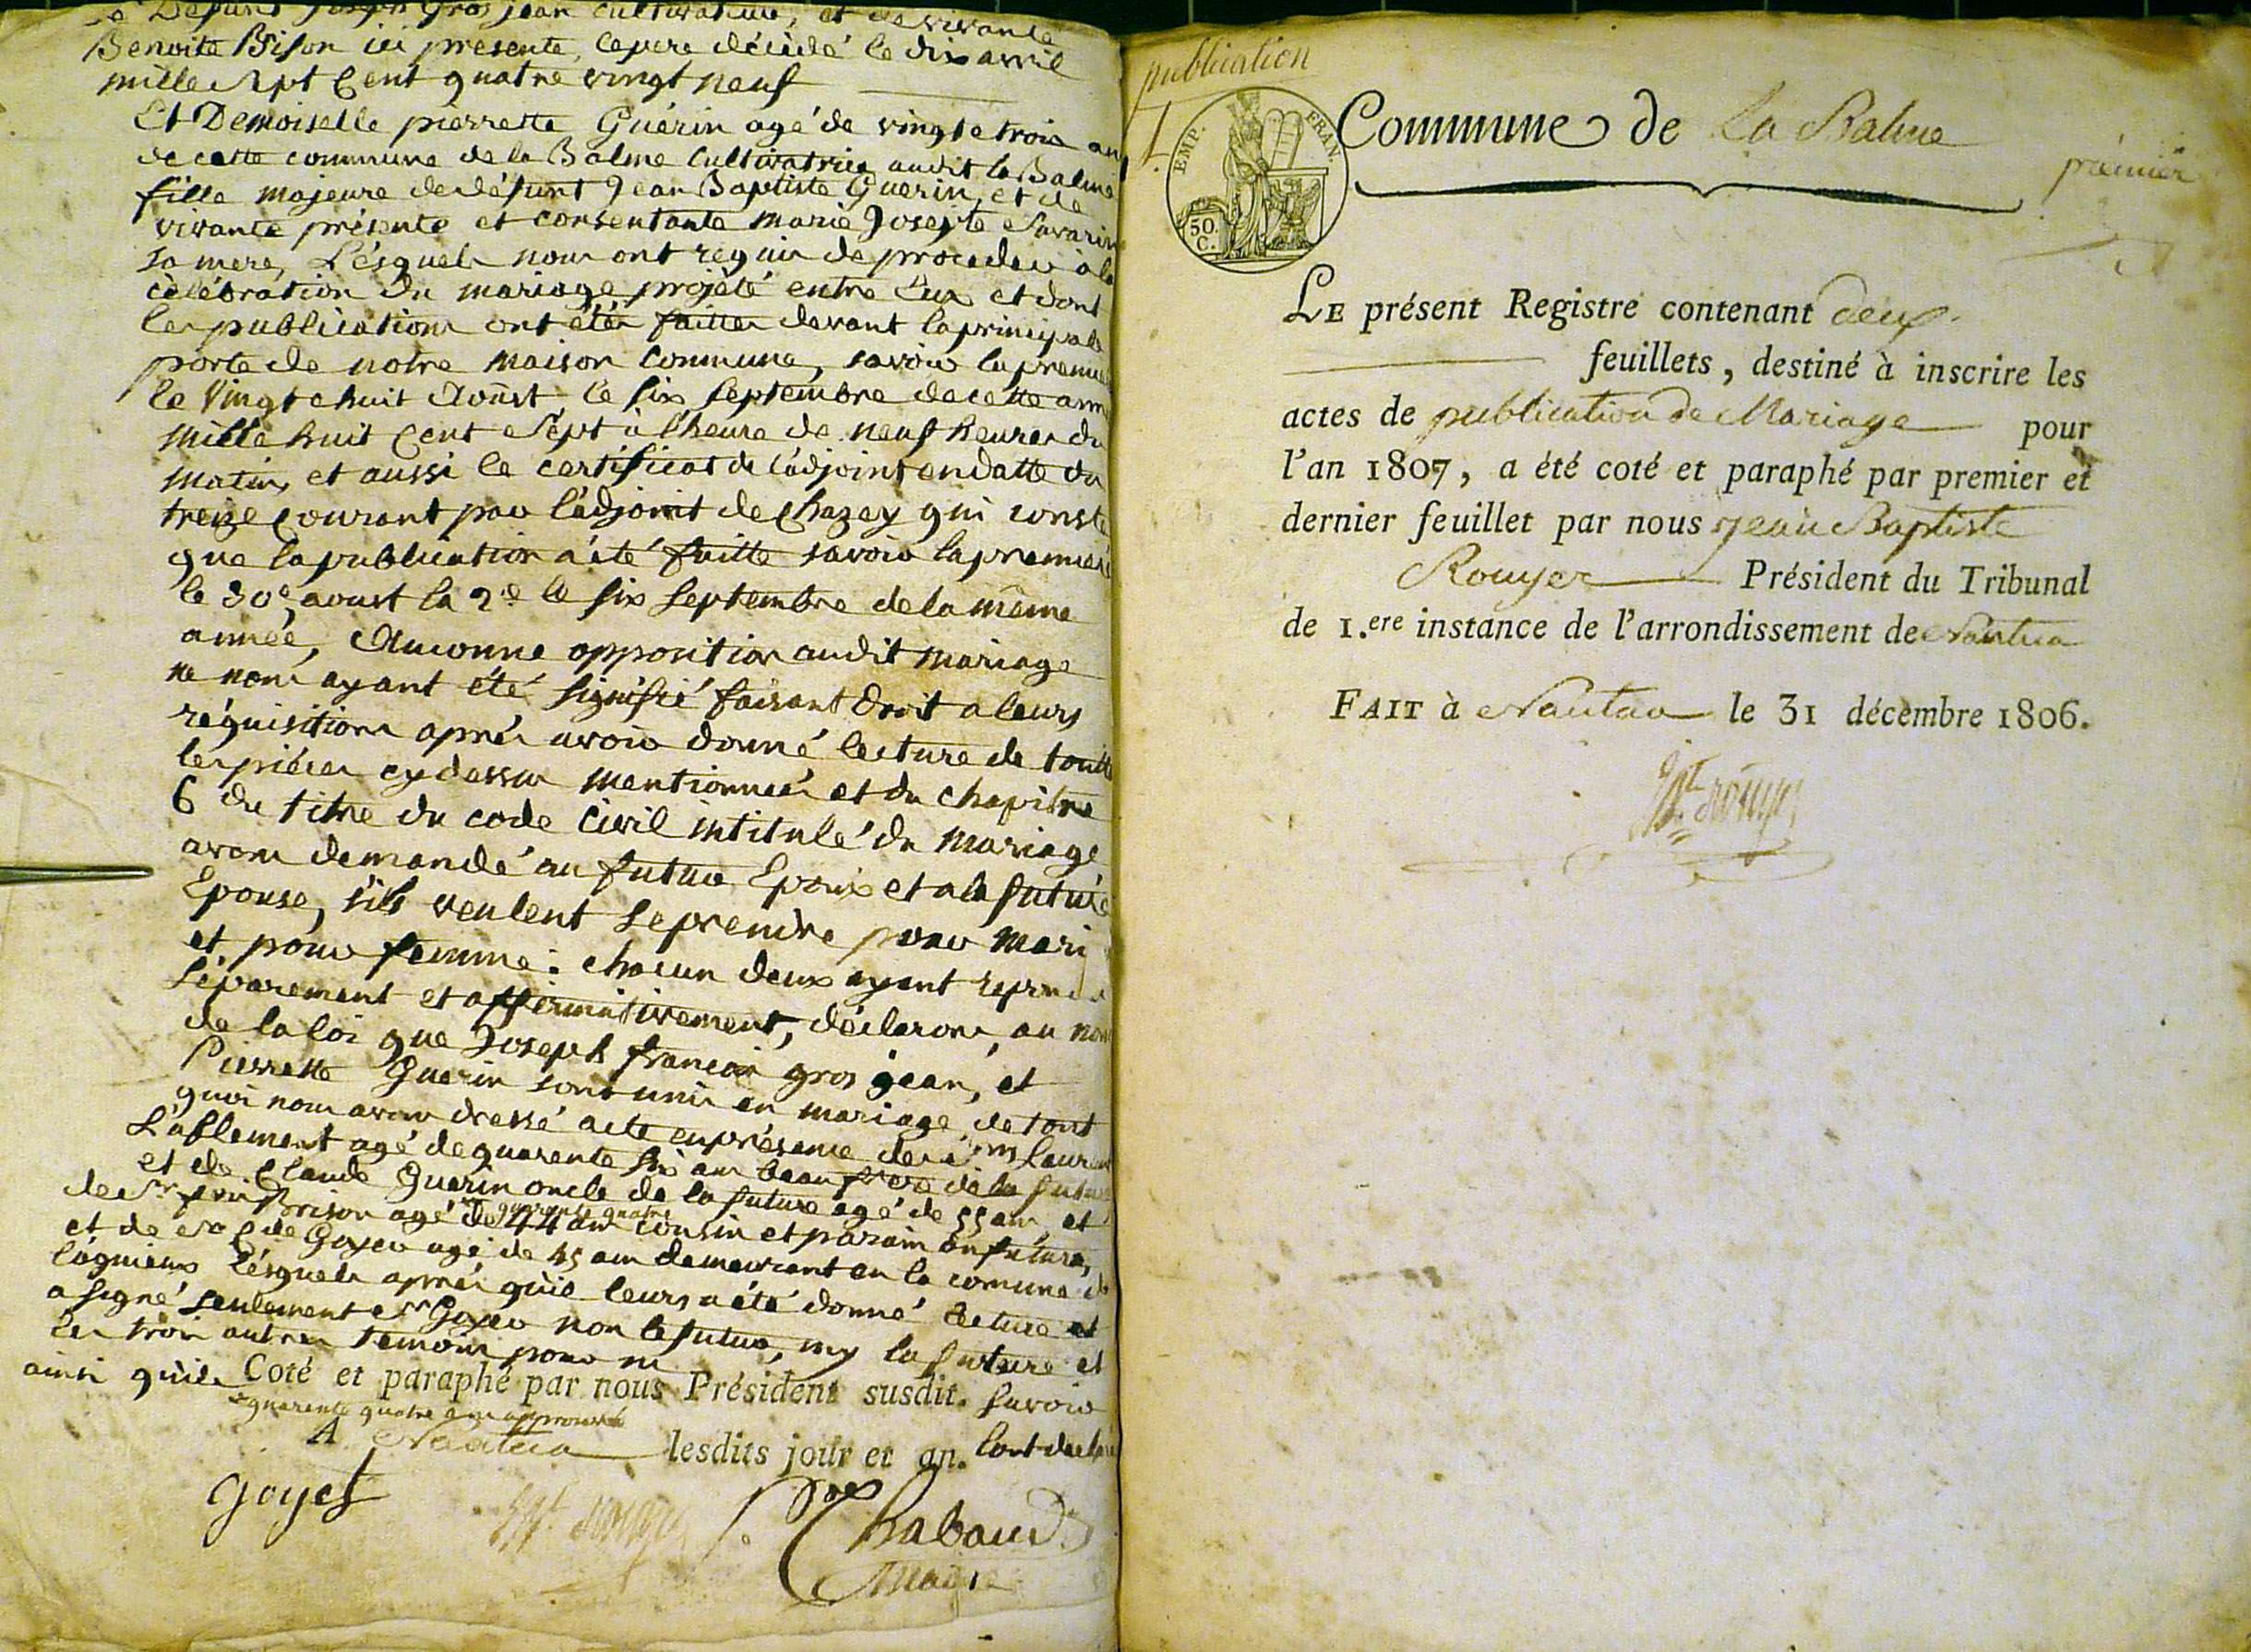 Defunt Joseph Gros jean Cultivateur, et de vivante
Benoite Brison ici présente, le pere décédé le dix avril
mille Sept Cent quatre vingt neuf
Et Demoiselle pierrette Guérin agé de vingt e trois an
de cette commune de la Balme Cultivatrice audit la Balme
fille majeure de défunt Jean Baptiste Guerin, et de
vivante présente et consentante marie Josepte Savarin
sa mere, Lesquels nous ont requis de proceder à la
célébration du mariage projété entre Eux et dont
les publications ont étés faittes devant la principale
porte de notre maison Commune, savoir la premie
le Vingt e huit Aoust le six Septembre de cette ann
mille huit Cent Sept à l'heure de neuf heures du
matin, et aussi le certificat de l'adjoint en datte du
treize Courant par l'adjoint de Chazey qui conste
que la publication a été faitte savoir la premiere
le 30e aoust la 2e le six Septembre de la même
année, Auconne opposition audit mariage
ne nous ayant été signifié faisant droit a leurs
réquisitions aprés avoir donné lecture de toutte
les piéces cy dessus mentionnées et du chapitre
6 du titre du code Civil intitulé du Mariage
avons demandé au futur Epoux et a la future
Epouse, s'ils veulent se prendre pour mari
et pour femme : chacun deux ayant repondu
séparement et affirmativement, déclarons, au nom
de la loi que Joseph francois gros jean, et
Pierrette Guerin sont unis en mariage, de tout
quoi nous avons dressé acte en présence de Laurent
agé de quarente six ans beau frere de la future
et de Claude Guerin oncle de la future agé de 55 ans, et
de Sr Brison agé de 44 ans cousin et parain du future,
quarente quatre
et de Goyer agé de 45 ans demeurant en la comune de
lagnieux Lesquels aprés qu'il leurs a été donné lecture et
a signé seulement Sr Goyer non le futur, ny la future et
les trois autres temoins pour ne
ainsi qu'ils Coté et paraphé par nous Président susdit. savoir
quarente quatre ans approuvé
A Nantua lesdits jour et an. l'ont declaré
Goyet
Chabaud
Maire
publication
1.
TEMP. FRAN.
50.
C.
Commune de La Balme
premier
LE présent Registre contenant deux
feuillets, destiné à inscrire les
actes de publication de Mariage pour
l'an 1807, a été coté et paraphé par premier et
dernier feuillet par nous Jean Baptiste
Rouyer Président du Tribunal
de 1.ere instance de l'arrondissement de Nantua
FAIT à Nantua le 31 décembre 1806.